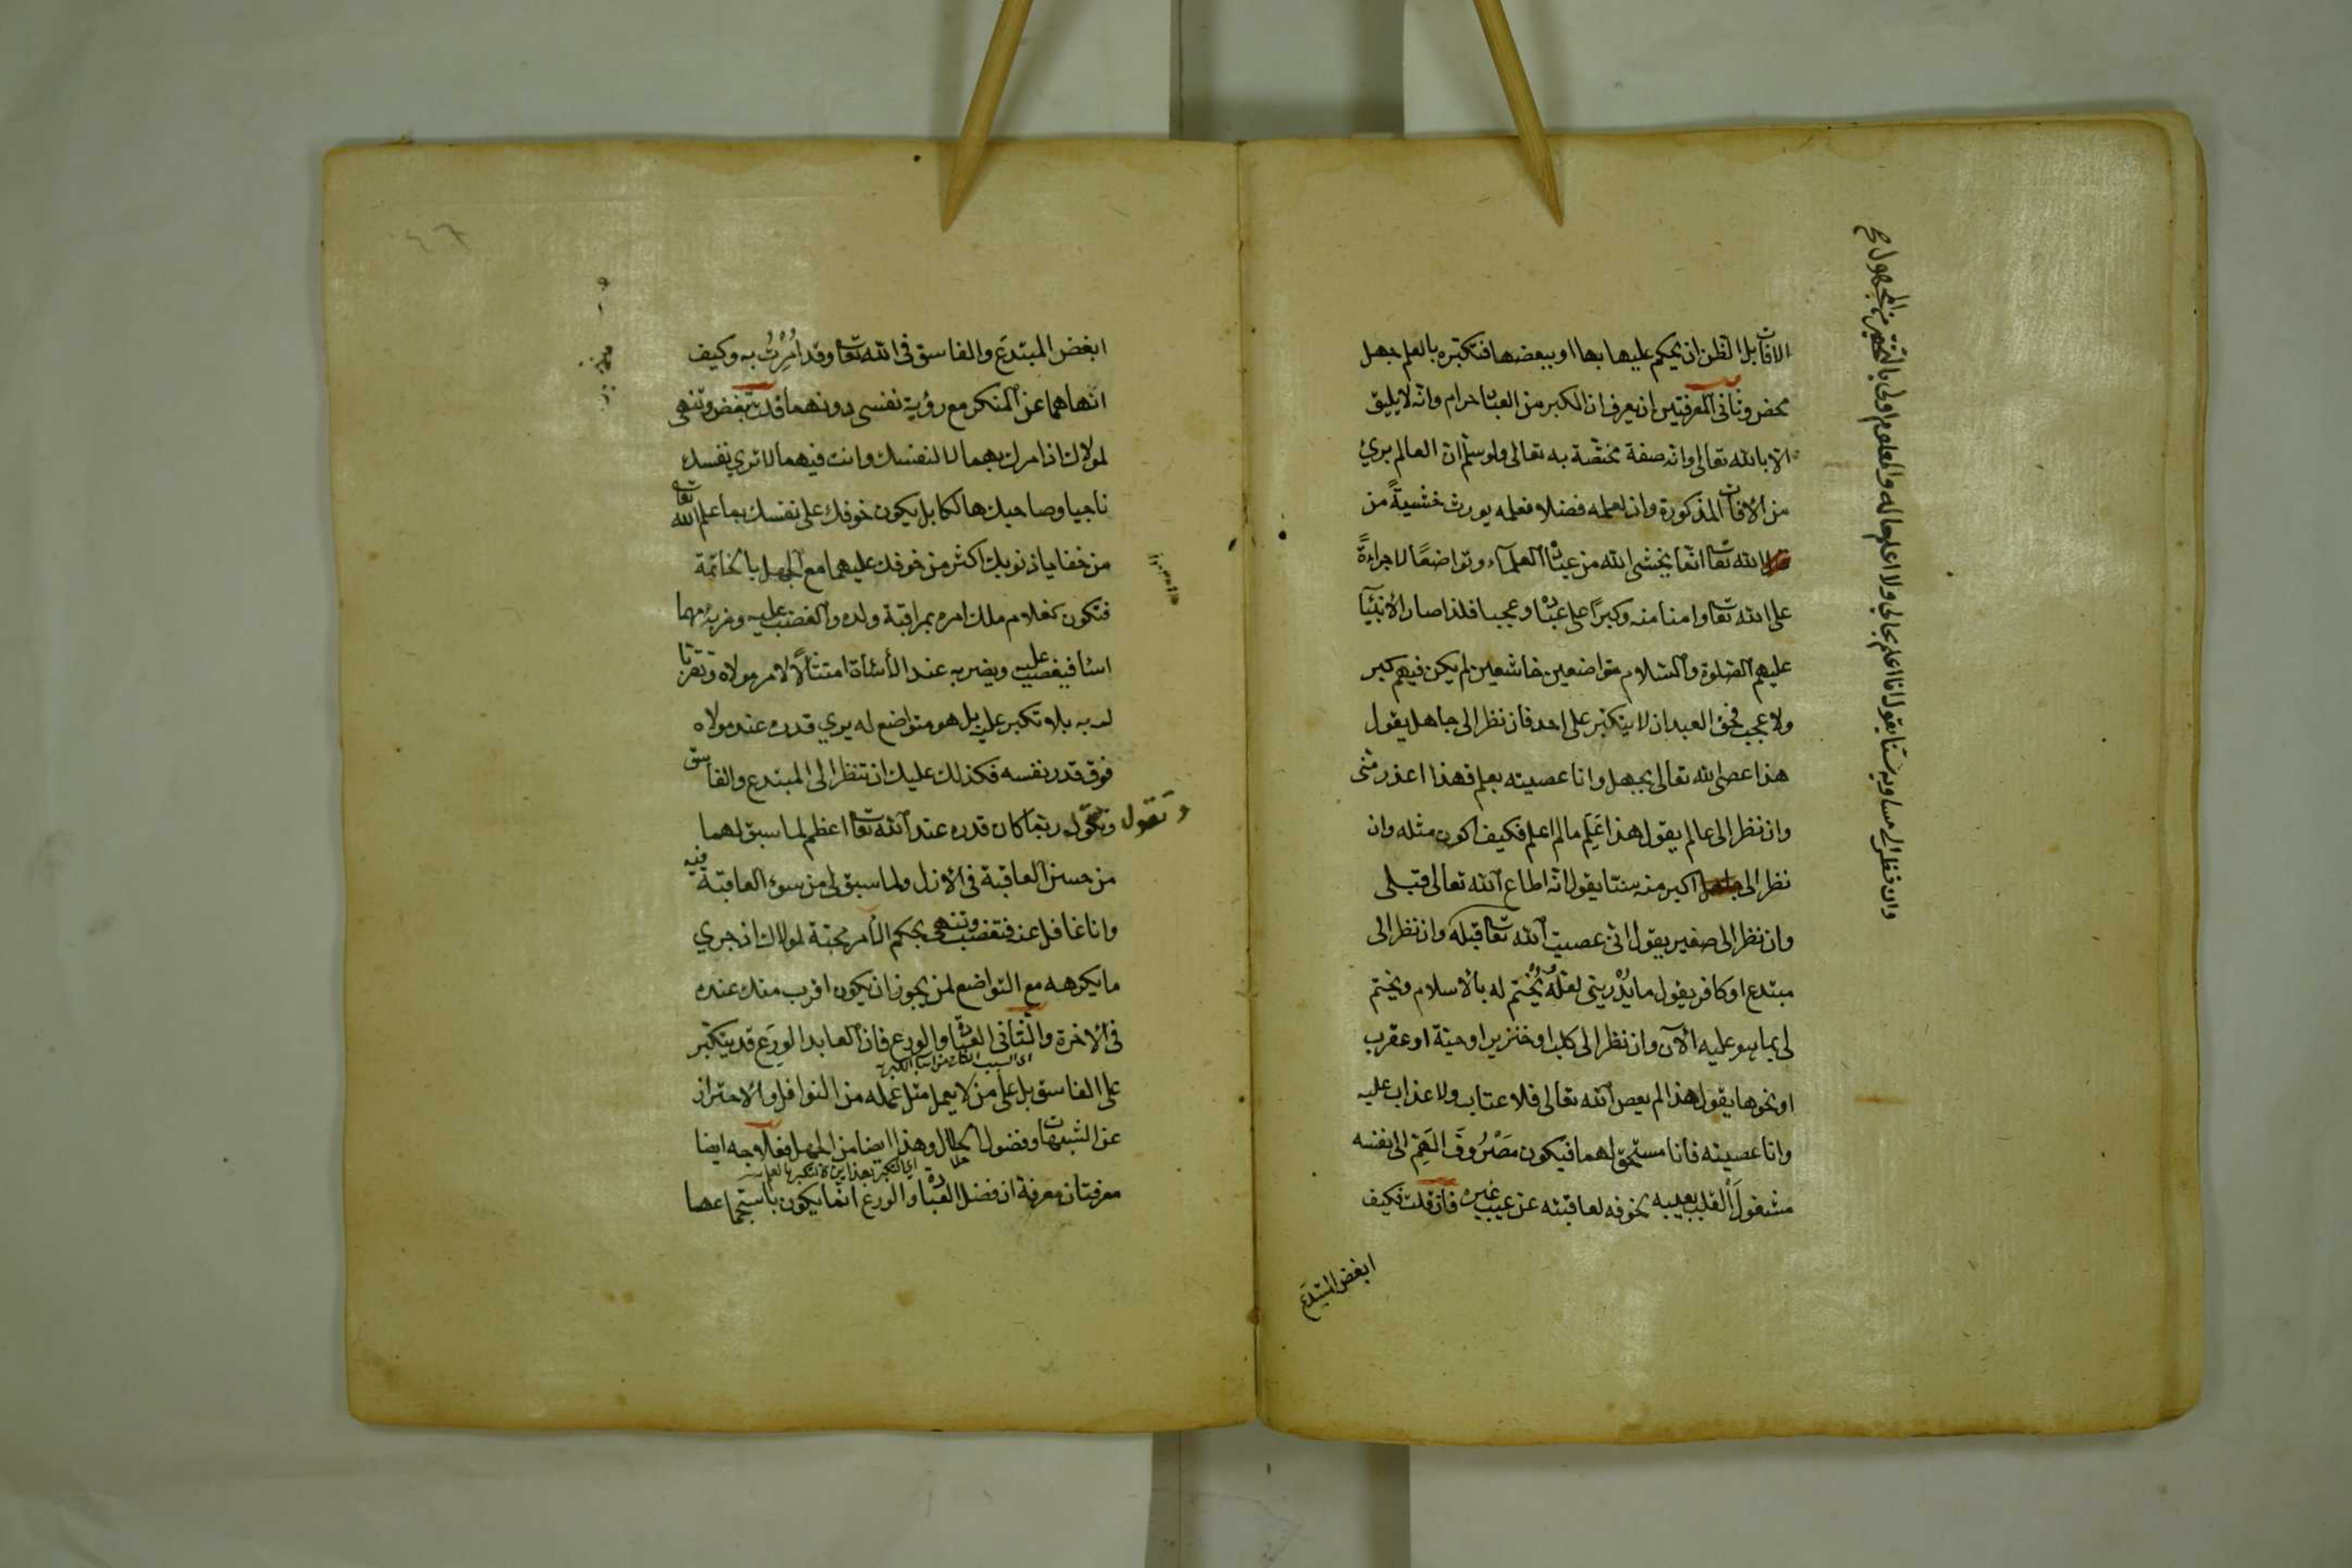 الافات بل الظن ان يحكم عليها بها او ببعضها فتكبره بالعلم جهل
محض وثانى المعرفتين ان يعرف ان الكبر من العباد حرام وانه لا يليق
الا بالله تعالى وانه صفة مختصة به تعالى ولو سلم ان العالم برئ
من الافات المذكورة وان لعلمه فضلا فعلمه يورث خشية من
الله تعا انما يخشى الله من عباده العلماء وتواضعا لا جراءة
على الله تعا وامنا منه وكبرا على عباده وعجبا فلذا صار الانبياء
عليهم الصلوة والسلام متواضعين خاشعين لم يكن فيهم كبر
ولا عجب فحق العبد ان لا يتكبر على احد فان نظر الى جاهل يقول
هذا عصى الله تعالى بجهل وانا عصيته بعلم فهذا اعذر منى
وان نظر الى عالم يقول هذا علم مالم اعلم فكيف اكون مثله وان
نظر الى اكبر منه سنا يقول انه اطاع الله تعالى قبلى
وان نظر الى صغير يقول انى عصيت الله تعا قبله وان نظر الى
مبتدع او كافر يقول ما يدرينى لعله يختم له بالاسلام ويختم
لى بما هو عليه الآن وان نظر الى كلب او خنزير او حية او عقرب
او نحوها يقول هذا لم يعص الله تعالى فلا عتاب ولا عذاب عليه
وانا عصيته فانا مستحق لهما فيكون مصروف الهم الى نفسه
مشغول القلب بعيبه لخوفه لعاقبته عن عيب غيره فان قلت فكيف
ابغض المبتدع
وان نظر الى مساويه سنا يقول انا اعلم بحالى ولا اعلم حاله والمعلوم اولى بالتحقير من المجهول صح
ابغض المبتدع والفاسق فى الله تعا وقد امرت به وكيف
انهاهما عن المنكر مع رؤية نفسى دونهما قلت تبغض وتنهى
لمولاك اذ امرك بهما لا لنفسك وانت فيهما لا ترى نفسك
ناجيا وصاحبك هالكا بل يكون خوفك على نفسك بما علم الله تعا
من خفايا ذنوبك اكثر من خوفك عليهما مع الجهل بالخاتمة
فتكون كغلام ملك امره بمراقبة ولده والغضب عليه وضربه مهما
اسأ فيغضب عليه ويضربه عند الاسأة امتثالا لامر مولاه وتقربا
له به بلا تكبر عليه بل هو متواضع له يرى قدره عند مولاه
فوق قدر نفسه فكذلك عليك ان تنظر الى المبتدع والفاسق
وتقول
وتقول ربما كان قدره عند الله تعا اعظم لما سبق لهما
من حسن العاقبة فى الازل ولما سبق لى من سوء العاقبة فيه
وانا غافل عنه فتغضب وتنهى بحكم الامر محبة لمولاك اذ جرى
ما يكرهه مع التواضع لمن يجوز ان يكون اقرب منك عنده
فى الاخرة والثانى العبادة والورع فان العابد الورع قد يتكبر
على الفاسق بل على من لا يعمل مثل عمله من النوافل والاحتراز
عن الشبهات وفضول الحلال وهذا ايضا من الجهل فعلاجه ايضا
معرفتان معرفة ان فضل العبادة والورع انما يكون باستجماعها